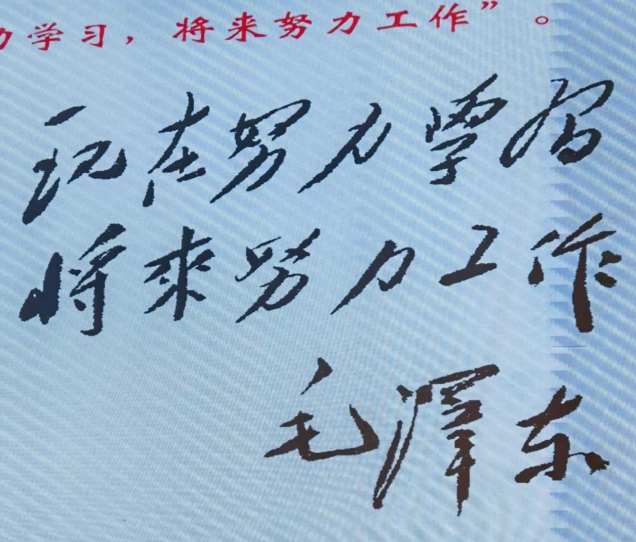 力学习，将来努力工作”。
现在努力學習
将來努力工作
毛澤东